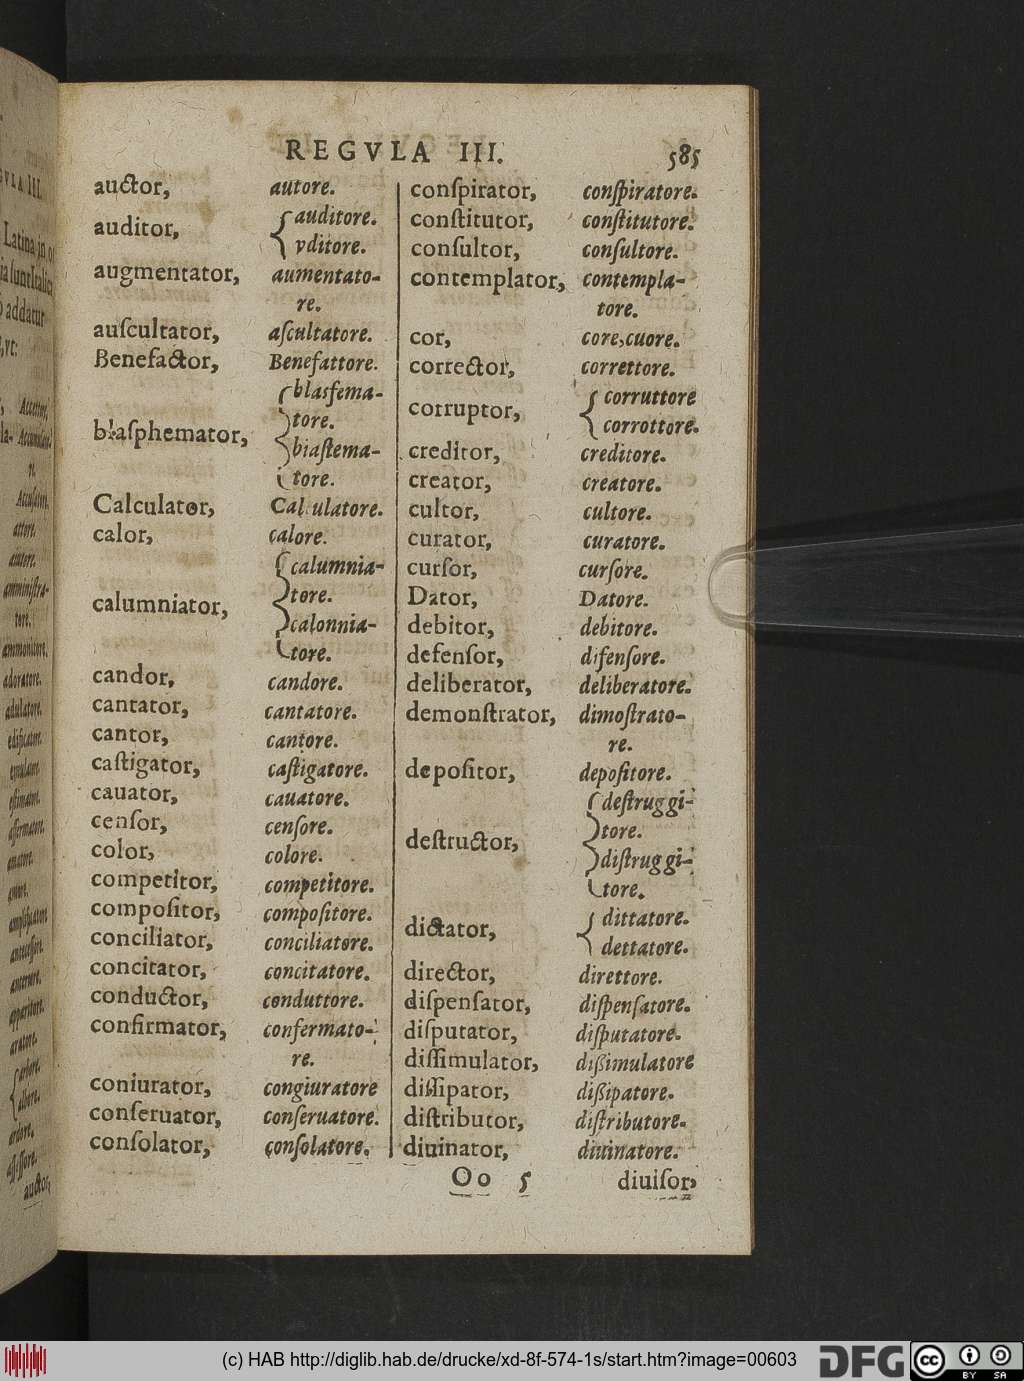 REGVLA III. 585
auctor, autore.
auditor, auditore.
vditore.
augmentator, aumentato-
re.
auſcultator, aſcultatore.
Benefactor, Benefattore.
blasfema-
tore.
blaſphemator,
biaſtema-
tore.
Calculator, Calculatore.
calor, calore.
calumnia-
tore.
calumniator,
calonnia-
tore.
candor, candore.
cantator, cantatore.
cantor, cantore.
caſtigator, caſtigatore.
cauator, cauatore.
cenſor, cenſore.
color, colore.
competitor, competitore.
compoſitor, compoſitore.
conciliator, conciliatore.
concitator, concitatore.
conductor, conduttore.
confirmator, confermato-
re.
coniurator, congiuratore
conſeruator, conſeruatore.
conſolator, conſolatore.
conſpirator, conſpiratore.
conſtitutor, conſtitutore.
conſultor, conſultore.
contemplator, contempla-
tore.
cor, core, cuore.
corrector, correttore.
corruptor, corruttore
corrottore.
creditor, creditore.
creator, creatore.
cultor, cultore.
curator, curatore.
curſor, curſore.
Dator, Datore.
debitor, debitore.
defenſor, difenſore.
deliberator, deliberatore.
demonſtrator, dimoſtrato-
re.
depoſitor, depoſitore.
deſtruggi-
tore.
deſtructor,
diſtruggi-
tore.
dictator, dittatore.
dettatore.
director, direttore.
diſpenſator, diſpenſatore.
diſputator, diſputatore.
diſſimulator, dißimulatore
diſſipator, dißipatore.
diſtributor, diſtributore.
diuinator, diuinatore.
Oo 5 diuiſor,
GVLA III.
Latina in
ſunt Italica
addatur
,vt:
Accuſatore,
attore.
autore.
amminiſtra-
tore.
ammonitore.
adoratore.
adulatore.
edificatore.
emulatore.
eſtimatore.
affermatore.
amatore.
amore.
amplificatore
anteceſſore.
apparitore.
aratore.
arbore.
albore.
ardore.
auctor,
(c) HAB http://diglib.hab.de/drucke/xd-8f-574-1s/start.htm?image=00603
DFG
cc BY SA